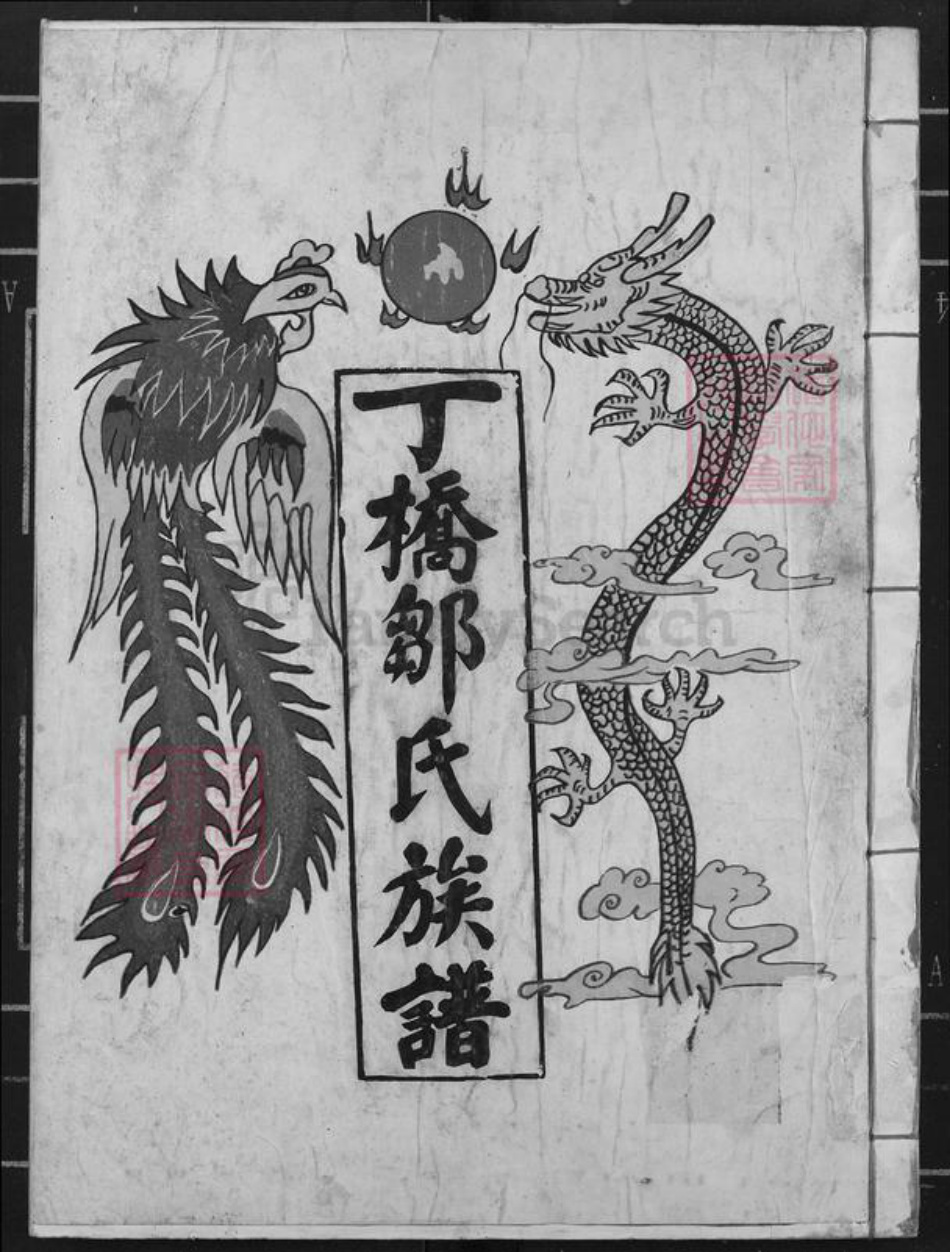 丁橋鄒氏族譜
FamilySearch